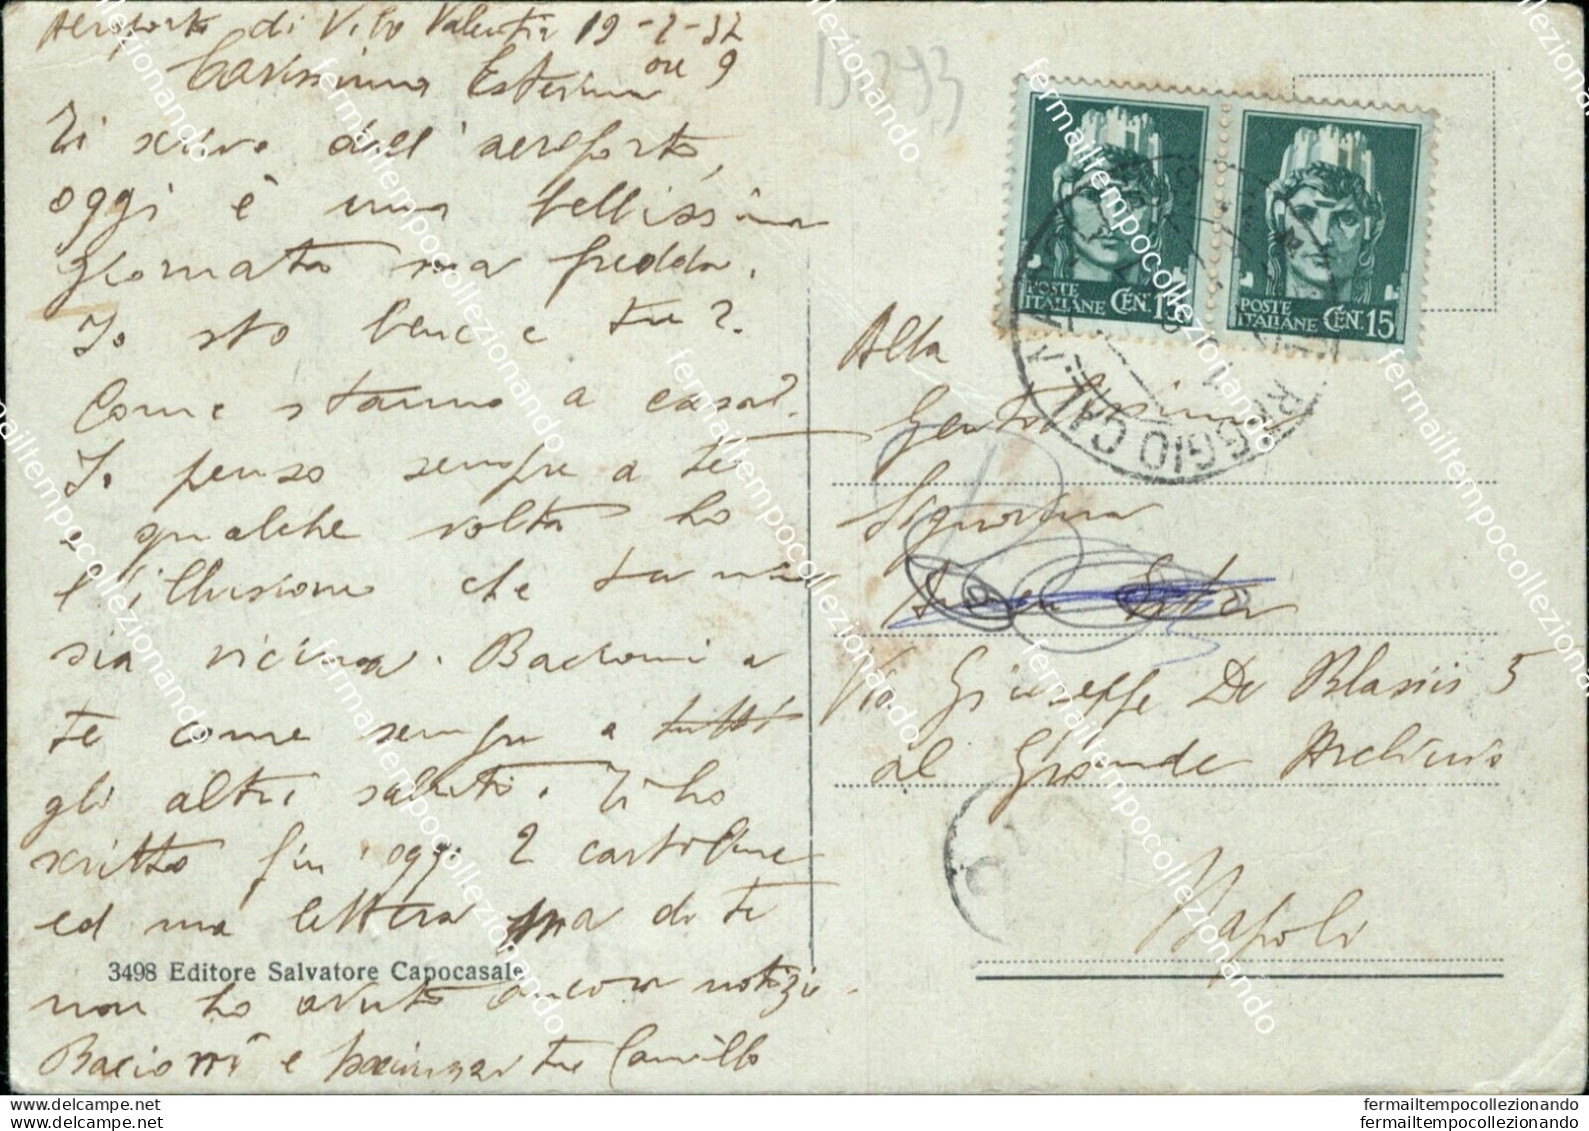 Aeroporto di Vibo Valentia 19-2-32
ore 9
Carissima Esterina
Ti scrivo dall'aeroporto,
oggi è una bellissima
giornata ma fredda.
Io sto bene e tu?
Come stanno a casa?
Io penso sempre a te
e qualche volta ho
l'illusione che tu mi
sia vicina. Bacioni a
te come sempre a tutti
gli altri saluti. Ti ho
scritto fin oggi 2 cartoline
ed una lettera ma di te
3498 Editore Salvatore Capocasale
non ho avuto ancora notizie.
Bacioni e tuo Camillo
B2393
POSTE ITALIANE CEN. 15
POSTE ITALIANE CEN. 15
REGGIO CAL
Alla
Gentilissima
Signorina
Ester
Via Giuseppe De Blasiis 5
al Grande Archivio
Napoli
fermailtempocollezionando
fermailtempocollezionando